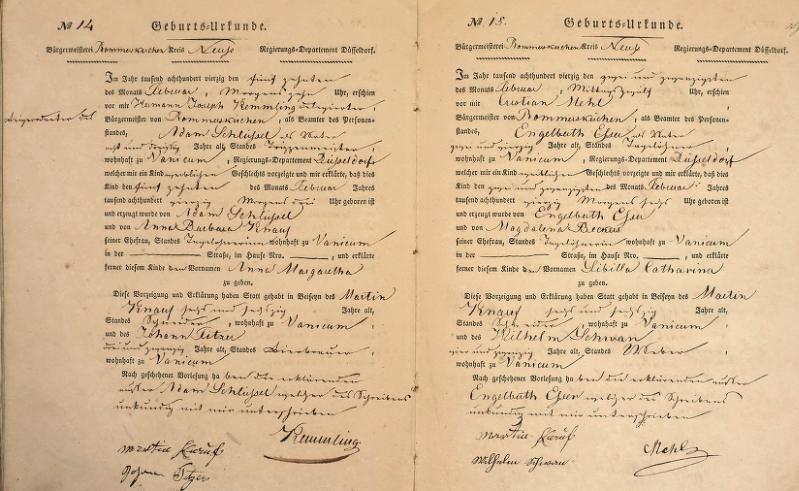 № 14 Geburts-Urkunde.
Bürgermeisterei Rommerskirchen Kreis Neuss Regierungs-Departement Düsseldorf.
Im Jahr tausend achthundert vierzig den fünf zehnten
des Monats Februar, Morgens zehn Uhr, erschien
vor mir Hermann Joseph Kemmling
Bürgermeister von Rommerskirchen, als Beamter des Personen-
standes, Adam Schlüssel als Vater
acht und dreißig Jahre alt, Standes
wohnhaft zu Vanicum, Regierungs-Departement Düsseldorf
welcher mir ein Kind weiblichen Geschlechts vorzeigte und mir erklärte, daß dies
Kind den fünf zehnten des Monats Februar Jahres
tausend achthundert vierzig Morgens drei Uhr geboren ist
und erzeugt wurde von Adam Schlüssel
und von Anna Barbara Knauf
seiner Ehefrau, Standes Tagelöhnerinn wohnhaft zu Vanicum
in der Straße, im Hause Nro. , und erklärte
ferner diesem Kinde den Vornamen Anna Margaretha
zu geben.
Diese Vorzeigung und Erklärung haben Statt gehabt in Beiseyn des Martin
Knauf sechs und sechszig Jahre alt,
Standes Schneider, wohnhaft zu Vanicum
und des Johann
drei und zwanzig Jahre alt, Standes Bierbrauer
wohnhaft zu Vanicum
Nach geschehener Vorlesung haben die erklärenden
außer Adam Schlüssel welcher des Schreibens
unkundig mit mir unterschrieben
Kemmling
Martin Knauf
Johann
№ 15. Geburts-Urkunde.
Bürgermeisterei Rommerskirchen Kreis Neuss Regierungs-Departement Düsseldorf.
Im Jahr tausend achthundert vierzig den zwei und zwanzigsten
des Monats Februar, Mittags zwölf Uhr, erschien
vor mir Mehl
Bürgermeister von Rommerskirchen, als Beamter des Personen-
standes, Engelbert Esser als Vater
und Jahre alt, Standes Tagelöhner
wohnhaft zu Vanicum, Regierungs-Departement Düsseldorf
welcher mir ein Kind weiblichen Geschlechts vorzeigte und mir erklärte, daß dies
Kind den zwei und zwanzigsten des Monats Februar Jahres
tausend achthundert vierzig Morgens sechs Uhr geboren ist
und erzeugt wurde von Engelbert Esser
und von Magdalena Beckers
seiner Ehefrau, Standes Tagelöhnerinn wohnhaft zu Vanicum
in der Straße, im Hause Nro. , und erklärte
ferner diesem Kinde den Vornamen Sibilla Catharina
zu geben.
Diese Vorzeigung und Erklärung haben Statt gehabt in Beiseyn des Martin
Knauf sechs und sechszig Jahre alt,
Standes Schneider, wohnhaft zu Vanicum
und des Wilhelm Schwan
vier und zwanzig Jahre alt, Standes Weber
wohnhaft zu Vanicum
Nach geschehener Vorlesung haben die erklärenden außer
Engelbert Esser welcher des Schreibens
unkundig mit mir unterschrieben
Martin Knauf
Wilhelm Schwan
Mehl